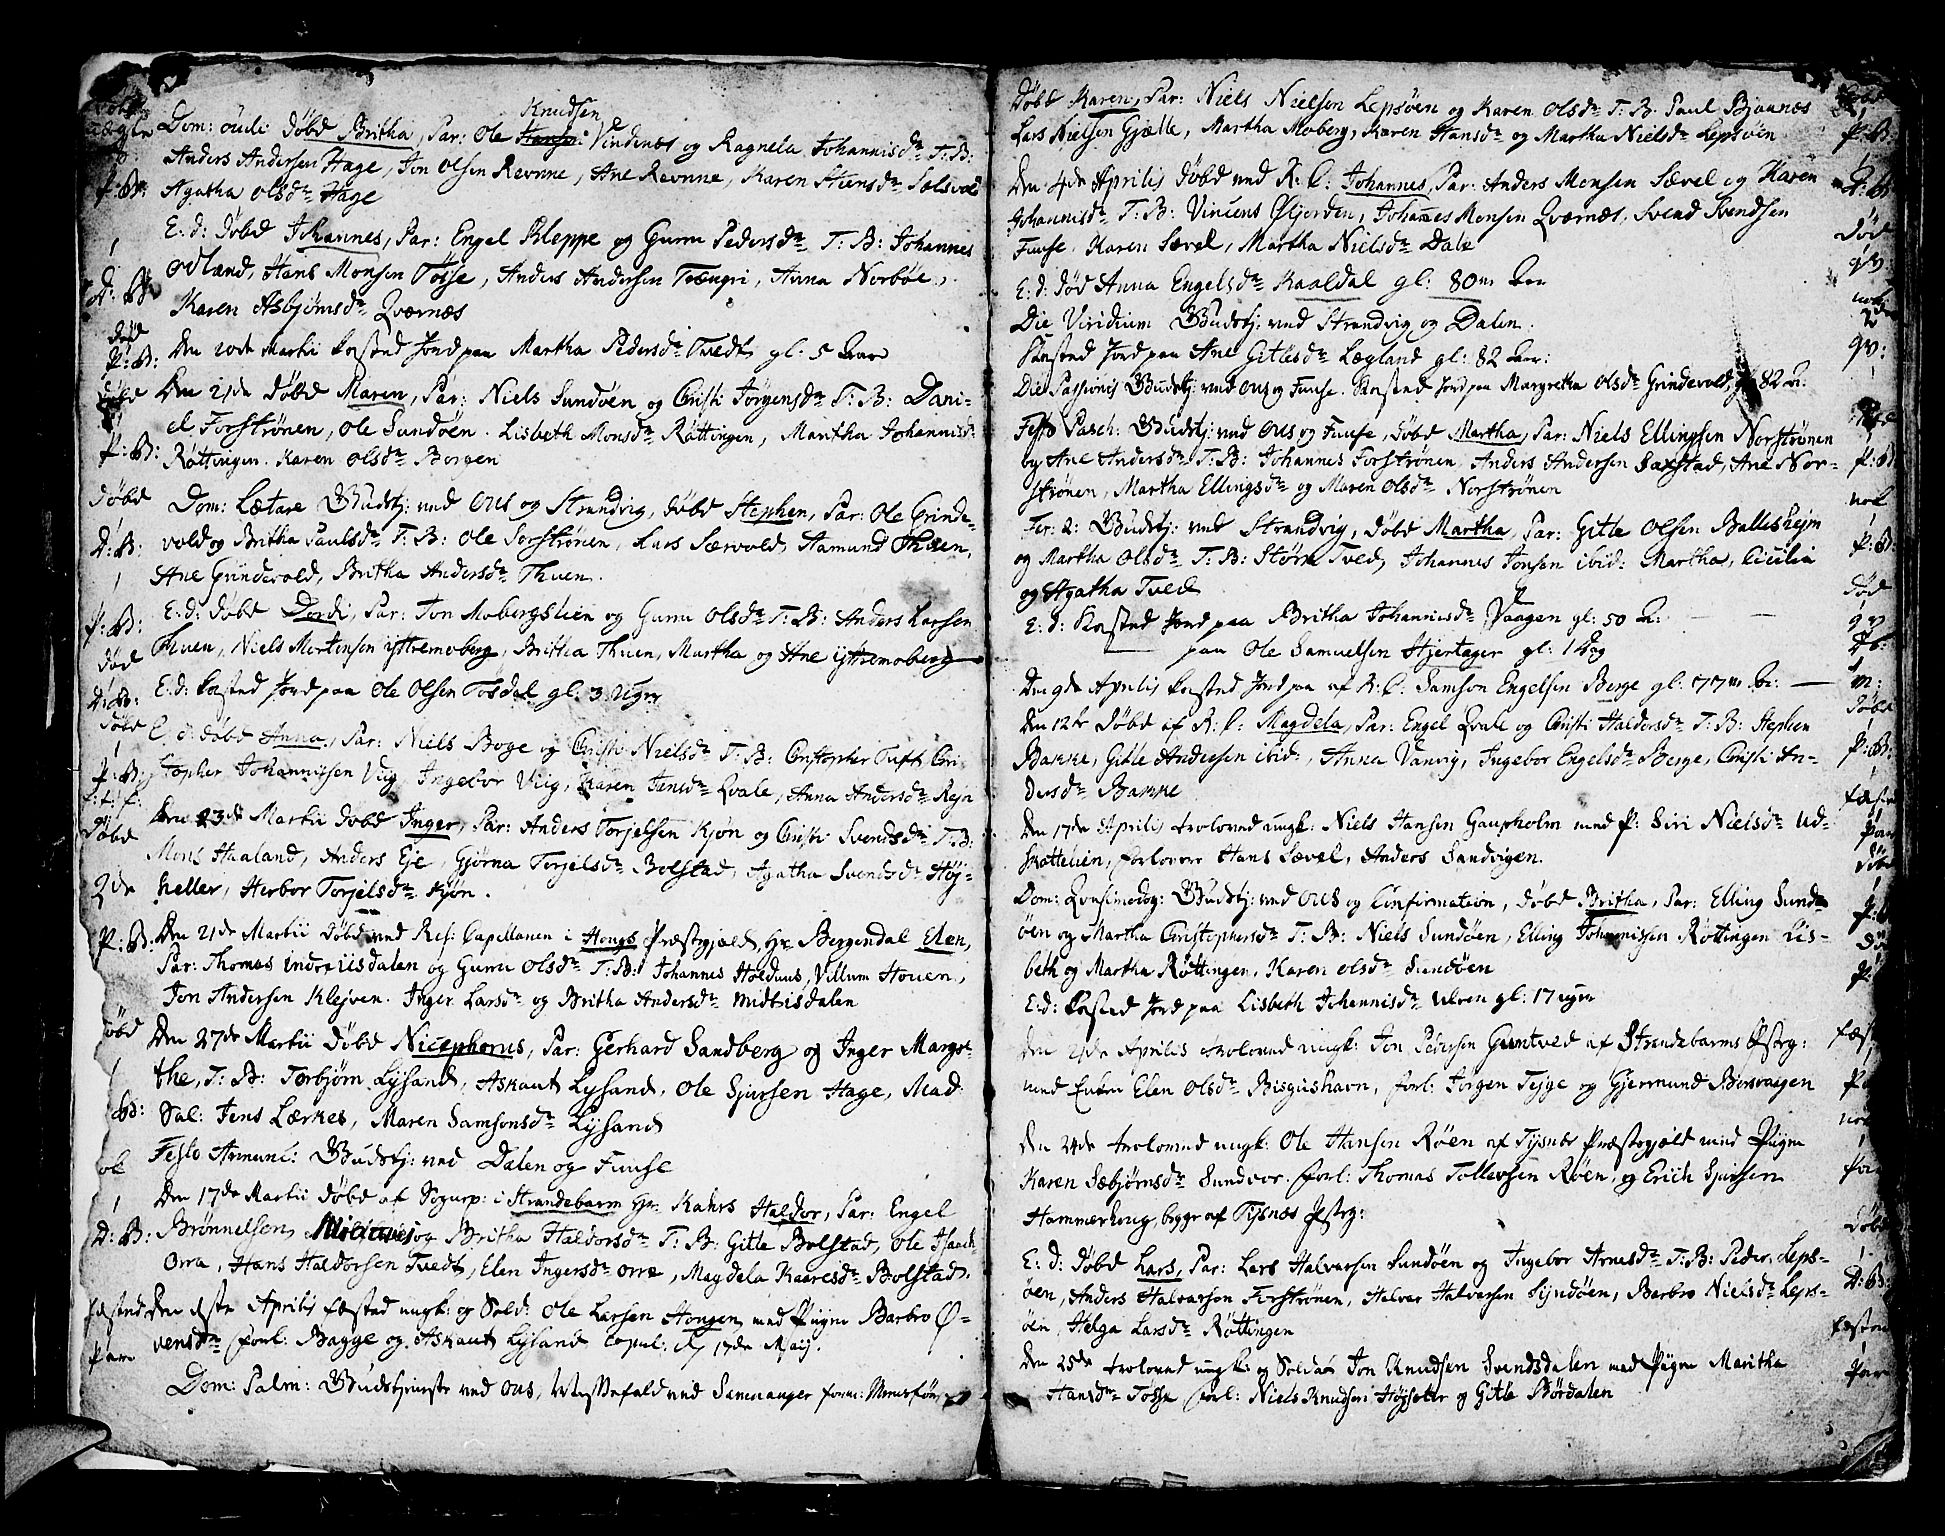 Knudsen
Dom: oculi døbd Britha, Par: Ole Vindenes og Ragnela Johannisdr T: B:
Anders Andersen Hage, Jon Olsen Revnne, Ane Revnne, Karen Steensdr Solsvold
P: B: Agatha Olsdr Hage
E: d: døbd Johannes, Par: Engel Kleppe og Guru Pedersdr T: B: Johannes
Odland, Hans Monsen Tosse, Anders Andersen Trængri, Anna Norbøe,
Karen Asbjørnsdr Qværnæs
død
P: B: Den 20de Martii kasted Jord paa Martha Pedersdr Tvedt gl: 5 Aar
døbd Den 21de døbd Maren, Par: Niels Sundøen og Christi Jørgensdr T: B: Dani-
el Forstrønen, Ole Sundøen. Lisbeth Monsdr Røttingen, Martha Johannisdr
P: B: Røttingen. Karen Olsdr Borgen
døbd Dom: Lætare Gudstj: ved Ous og Strandvig, døbd Stephen, Par: Ole Grinde-
D: B: vold og Britha Paulsdr T: B: Ole Forstrønen, Lars Særvold, Aamund Thuen,
Ane Grindevold, Britha Andersdr Thuen.
P: B: E: d: døbd Dordi, Par: Jon Mobergslien og Guru Olsdr T: B: Anders Larsen
Thuen, Niels Mortensen Ystremoberg, Britha Thuen, Martha og Ane Ystremoberg
død E: d: kasted Jord paa Ole Olsen Tosdal gl: 3 Uger
døbd E: d: døbd Anna, Par: Niels Boge og Christi Nielsdr T: B: Christopher Tuft, Chri-
P: B: stopher Johannissen Viig, Ingebor Viig, Karen Jensdr Qvale, Anna Andersdr Rejn
døbd Den 23de Martii døbd Inger, Par: Anders Torjelsen Kjøn og Christi Svendsdr T: B:
Mons Haaland, Anders Eje, Gjørna Torjelsdr Bolstad, Agatha Svendsdr Høj-
heller, Herbor Torjelsdr Kjøn.
P: B: Den 21de Martii døbd ved Res: Capellanen i Hougs Præstegjæld, Hr Beggendal Elen,
Par: Thomas Indreiisdalen og Guru Olsdr T: B: Johannes Holduus, Villum Houen,
Jon Andersen Klejven. Inger Larsdr og Britha Andersdr Midtiisdalen
døbd Den 27de Martii døbd Nicephorus, Par: Gerhard Sandberg og Inger Margre-
the, T: B: Torbjørn Lysand, Askaut Lysand, Ole Sjursen Hage, Mad:
B: Sal: Jens Lærkes, Maren Samsonsdr Lysand
Festo Annunc: Gudstj: ved Dalen og Fuuse
Den 17de Martii døbd af Sogurp: i Strandebarm Hr: Kahrs Haldor, Par: Engel
D: B: Brønnelsen og Britha Haldorsdr T: B: Gitle Bolstad, Ole Isaach-
Orra, Hans Haldorsen Tvedt, Elen Ingersdr Orre, Magdela Kaaresdr Bolstad.
fæstend: Den 1ste Aprilis fæsted ungk: og Sold: Ole Larsen Hougen med Pigen Barbro Ø-
Par vensdr forl: Bagge og Askaut Lysand copul: d: 17de Maij.
Dom: Palm: Gudstjeneste ved Ous, Messefald ved Samnanger form:
Døbd Karen, Par: Niels Nielsen Lepsøen og Karen Olsdr T: B: Paul Bjaanæs
Lars Nielsen Gjælle, Martha Moberg, Karen Hansdr og Martha Nielsdr Lepsøen P: B:
Den 4de Aprilis døbd ved R: C: Johannes, Par: Anders Monsen Sævel og Karen
Johannisdr T: B: Vincens Gljerden, Johannes Monsen Qværnæs, Svend Svendsen
Fuuse, Karen Sævel, Martha Nielsdr Dale død
E: d: død Anna Engelsdr Kaaldal gl: 80 Aar qv:
Die Viridium Gudstj: ved Strandvig og Dalen.
Kasted Jord paa Ane Gitlesdr Lægland gl: 82 Aar: qv:
Die Passionis Gudstj: ved Ous og Fuuse. Kasted Jord paa Margretha Olsdr Grindevold, gl 82 A:
Festo Pasch: Gudstj: ved Ous og Fuuse, døbd Martha, Par: Niels Ellingsen Norstrønen
og Ane Andersdr T: B: Johannes Forstrønen, Anders Andersen Saxstad, Ane Nor- P: B:
strønen, Martha Ellingsdr og Maren Olsdr Norstrønen
Fer: 2: Gudstj: ved Strandvig, døbd Martha, Par: Gitle Olsen Ballesheim
og Martha Olsdr T: B: Størk Tved, Johannes Jonsen ibid: Martha, Cicilia P: B:
og Agatha Tved død
E: d: Kasted Jord paa Britha Johannisdr Vaagen gl: 50 A:
paa Ole Samuelsen Hjertager gl: 1 Dag
Den 9de Aprilis kasted Jord paa af R: C: Samson Engelsen Berge gl: 77 A: m:
Den 12te døbd af R: C: Magdela, Par: Engel Qvale og Christi Haldersdr T: B: Stephen døbd
Bakke, Gitle Andersen ibid:, Anna Vanvig, Ingebor Engelsdr Berge, Christi An- P: B:
dersdr Bakke
Den 17de Aprilis troloved ungk: Niels Hansen Gaupholm med P: Siri Nielsdr Ud-
skottelien, forlovere Hans Sævel, Anders Sandvigen.
Dom: Qvasimodog: Gudstj: ved Ous og Confirmation, døbd Britha, Par: Elling Sund-
øen og Martha Christophersdr T: B: Niels Sundøen, Elling Johannissen Røttingen Lis-
beth og Martha Røttingen, Karen Olsdr Sundøen
E: d: kasted Jord paa Lisbeth Johannisdr Ulven gl: 17 uger
Den 21de Aprilis trolovd ungk: Jon Pedersen Guntved af Strandebarms Pstrg:
med Enken Elen Olsdr Bisgushavn, forl: Jørgen Tejge og Gjermund Børsvaagen
Den 24de trolovd ungk: Ole Hansen Røen af Tysnes Præstegjæld med Pigen
Karen Sæbjørnsdr Sundvor. forl: Thomas Tollevsen Røen, og Erich Sjursen
Hammerhoug, begge af Tysnæs Pstrg:
E: d: døbd Lars, Par: Lars Halvorsen Sundøen og Ingebor Arnesdr T: B: Peder Leps-
øen, Anders Halvorsen Forstrønen, Halvor Halvorsen Syndøen, Barbro Nielsdr Leps- D: B:
øen, Helga Larsdr Røttingen
Den 25de trolovd ungk: og Soldat Jon Knudsen Svendsdalen med Pigen Maritha
Hansdr Tosse forl: Niels Knudsen Højseter og Gitle Børdalen